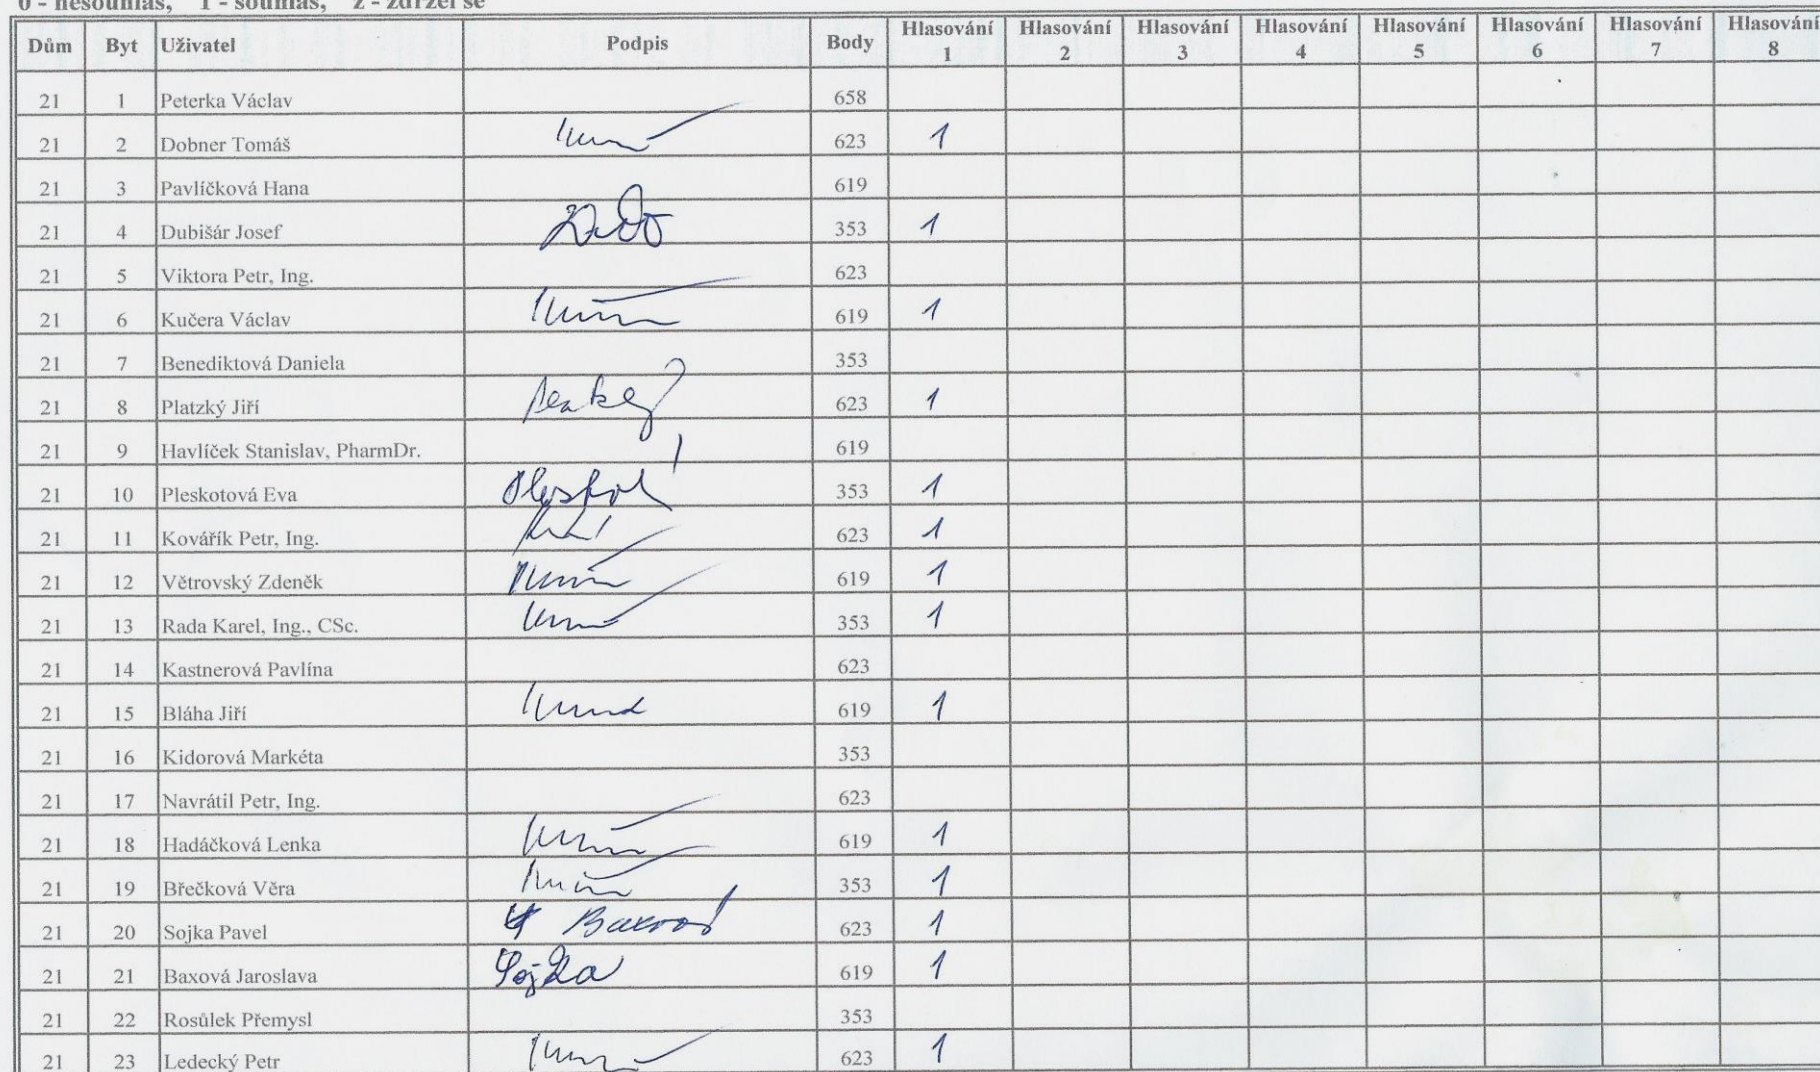 0 - nesouhlas, 1 - souhlas, z - zdržel se
Dům Byt Uživatel Podpis Body Hlasování 1 Hlasování 2 Hlasování 3 Hlasování 4 Hlasování 5 Hlasování 6 Hlasování 7 Hlasování 8
21 1 Peterka Václav 658
21 2 Dobner Tomáš 623 1
21 3 Pavlíčková Hana 619
21 4 Dubišár Josef 353 1
21 5 Viktora Petr, Ing. 623
21 6 Kučera Václav 619 1
21 7 Benediktová Daniela 353
21 8 Platzký Jiří 623 1
21 9 Havlíček Stanislav, PharmDr. 619
21 10 Pleskotová Eva 353 1
21 11 Kovářík Petr, Ing. 623 1
21 12 Větrovský Zdeněk 619 1
21 13 Rada Karel, Ing., CSc. 353 1
21 14 Kastnerová Pavlína 623
21 15 Bláha Jiří 619 1
21 16 Kidorová Markéta 353
21 17 Navrátil Petr, Ing. 623
21 18 Hadáčková Lenka 619 1
21 19 Břečková Věra 353 1
21 20 Sojka Pavel 623 1
21 21 Baxová Jaroslava Sojka 619 1
21 22 Rosůlek Přemysl 353
21 23 Ledecký Petr 623 1